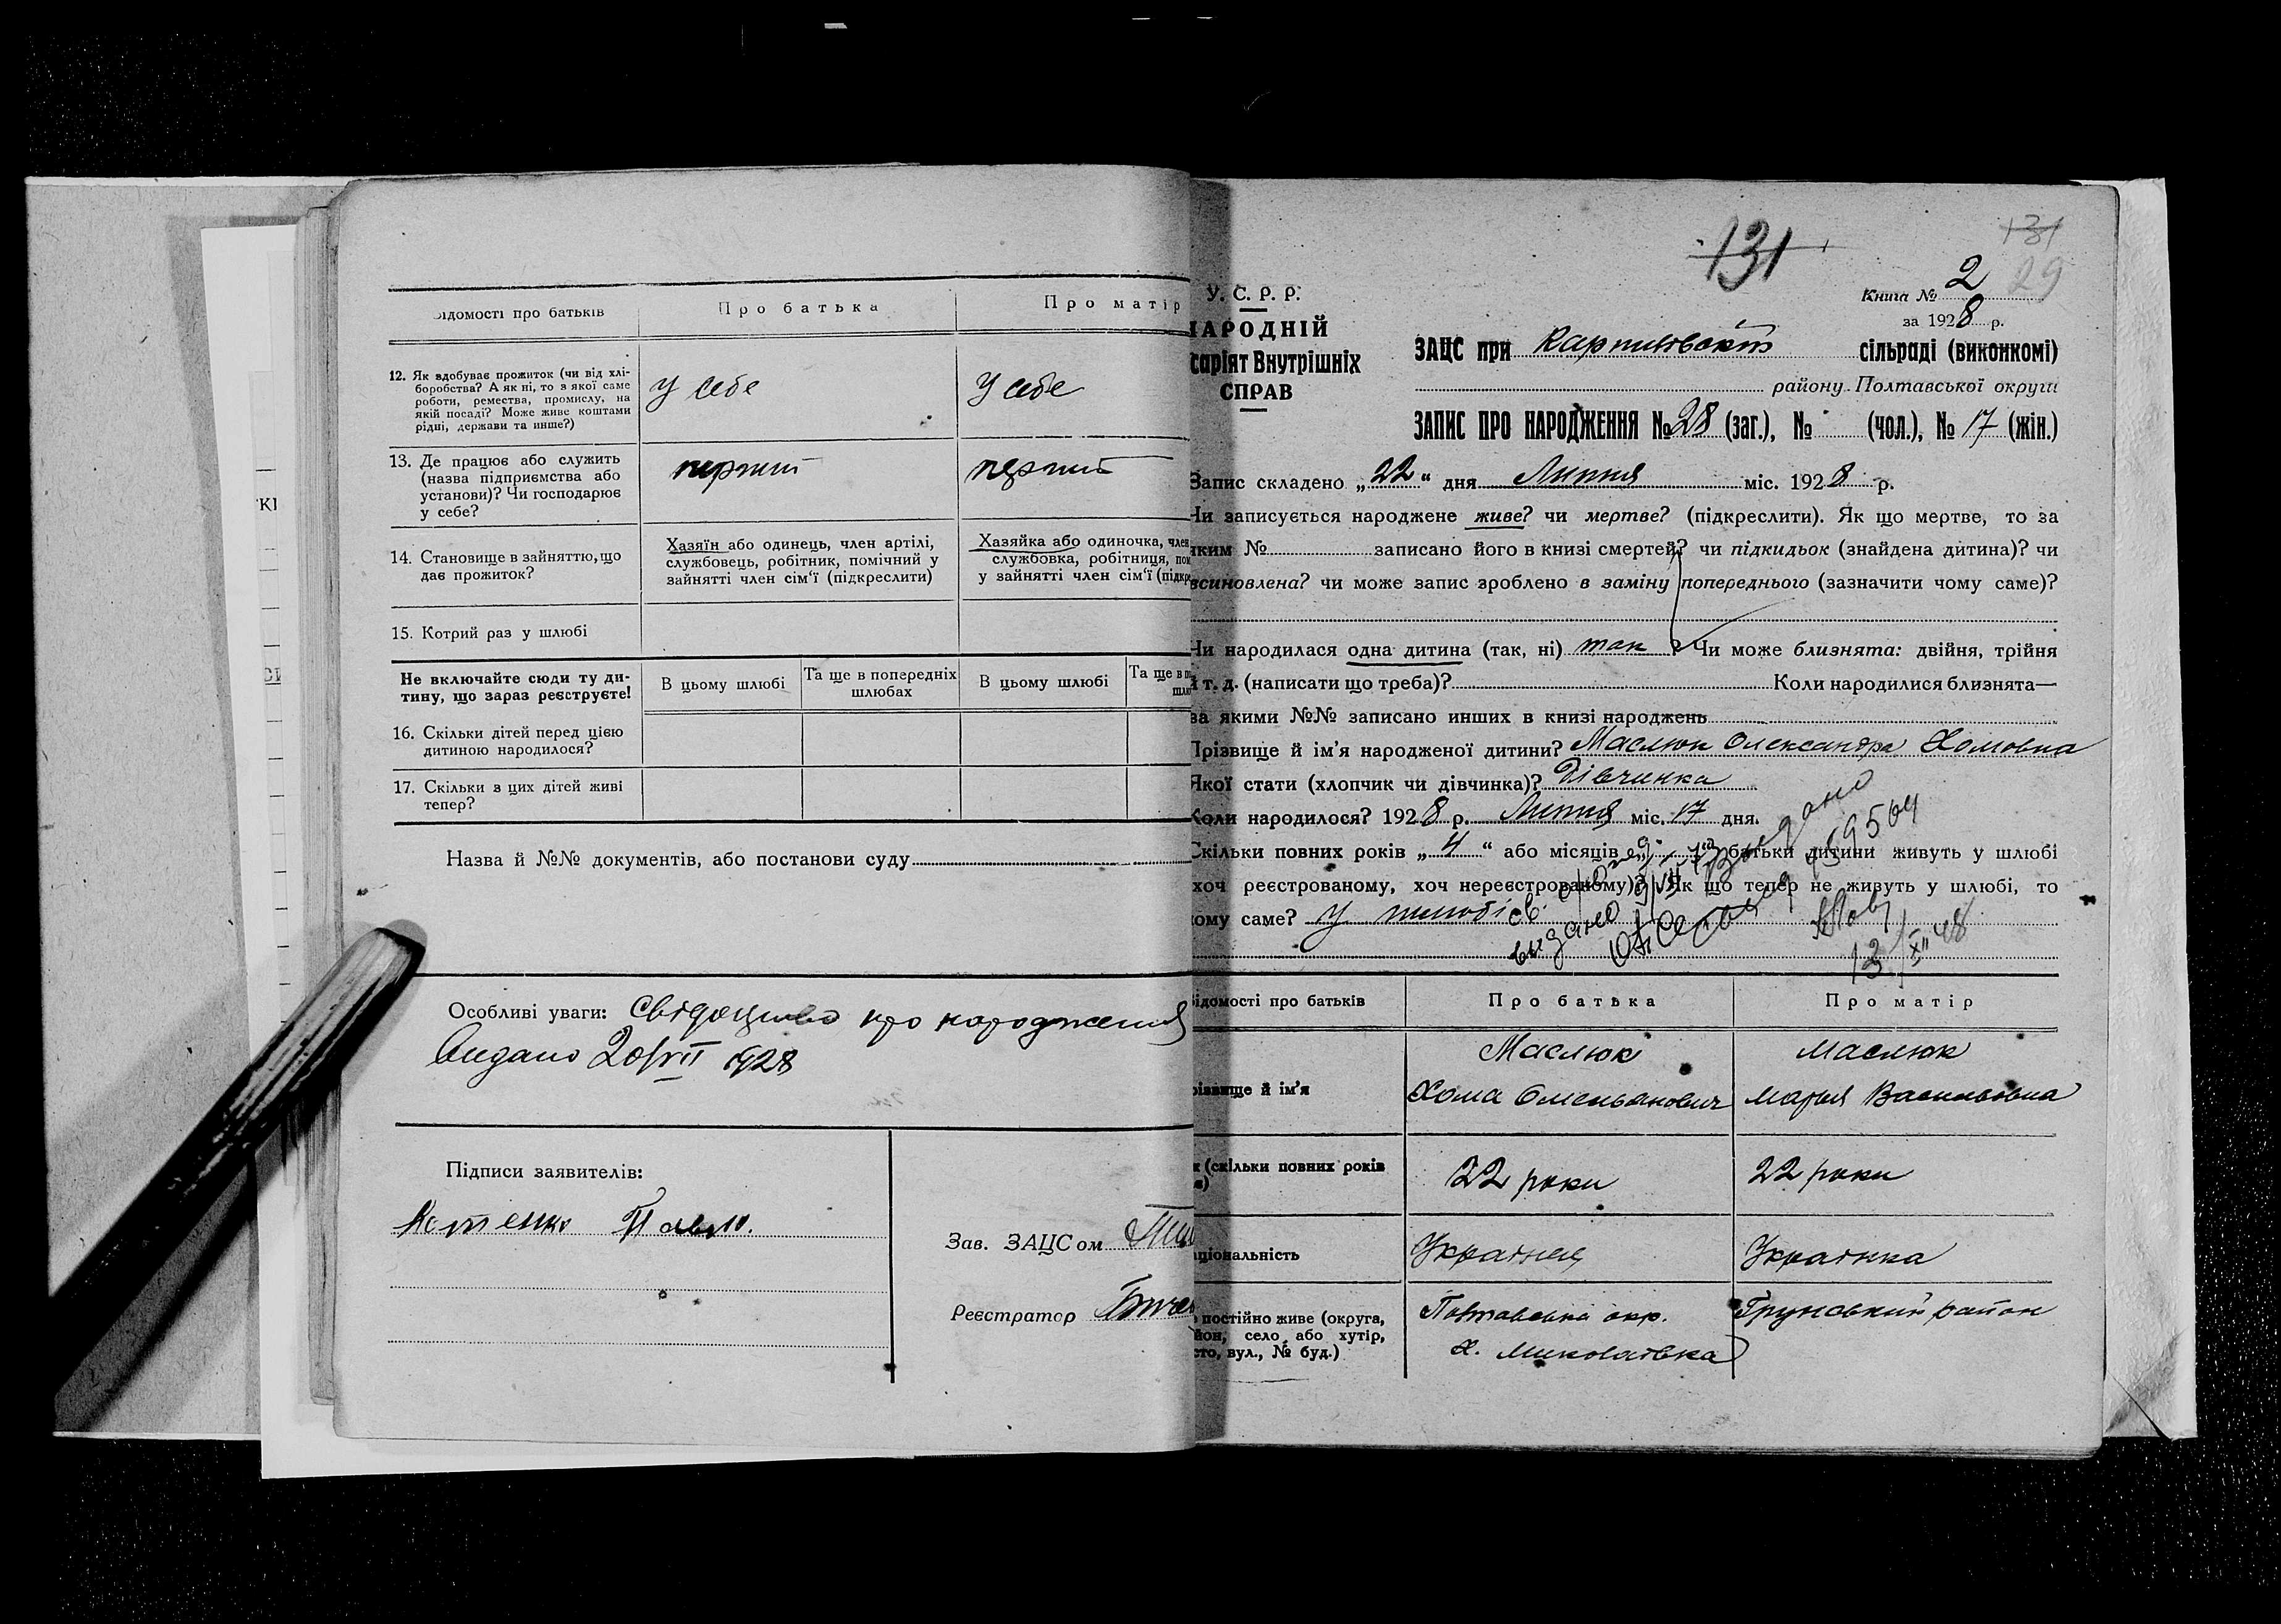 Відомості про батьків
Про батька
Про матір
12. Як здобуває прожиток (чи від хлі-
боробства? А як ні, то з якої саме
роботи, ремества, промислу, на
якій посаді? Може живе коштами
рідні, держави та инше?)
у себе
у себе
13. Де працює або служить
(назва підприємства або
установи)? Чи господарює
у себе?
14. Становище в зайняттю, що
дає прожиток?
Хазяїн або одинець, член артілі,
службовець, робітник, помічний у
зайнятті член сім'ї (підкреслити)
Хазяйка або одиночка, член
службовка, робітниця, пом
у зайнятті член сім'ї (підкре
15. Котрий раз у шлюбі
Не включайте сюди ту ди-
тину, що зараз реєструєте!
В цьому шлюбі
Та ще в попередніх
шлюбах
В цьому шлюбі
Та ще в по
шлю
16. Скільки дітей перед цією
дитиною народилося?
17. Скільки з цих дітей живі
тепер?
Назва й №№ документів, або постанови суду
Особливі уваги: свідоцтво про народження
видано 20/VII 1928
Підписи заявителів:
Павло.
Зав. ЗАЦСом
Реєстратор
131
131
29
Книга № 2
за 1928 р.
У. С. Р. Р.
НАРОДНІЙ
саріят Внутрішніх
СПРАВ
ЗАЦС при сільраді (виконкомі)
району Полтавської округи
ЗАПИС ПРО НАРОДЖЕННЯ № 28 (заг.), № (чол.), № 17 (жін.)
Запис складено „22“ дня Липня міс. 1928 р.
Чи записується народжене живе? чи мертве? (підкреслити). Як що мертве, то за
яким № записано його в книзі смертей? чи підкидьок (знайдена дитина)? чи
всиновлена? чи може запис зроблено в заміну попереднього (зазначити чому саме)?
Чи народилася одна дитина (так, ні) так? Чи може близнята: двійня, трійня
й т. д. (написати що треба)? Коли народилися близнята—
за якими №№ записано инших в книзі народжень
Прізвище й ім'я народженої дитини? Маслюк Олександра Хомовна
Якої стати (хлопчик чи дівчинка)? Дівчинка
Коли народилося? 1928 р. Липня міс. 17 дня.
Скільки повних років „4“ або місяців батьки дитини живуть у шлюбі
хоч реєстрованому, хоч нереєстрованому)? Як що тепер не живуть у шлюбі, то
кому саме? у шлюбі
выдано
459504
13/XII 48
Відомості про батьків
Про батька
Про матір
Прізвище й ім'я
Маслюк
Хома Омельянович
Маслюк
Марья Васильовна
к (скільки повних років
22 роки
22 роки
Національність
Українец
Українка
постійно живе (округа,
йон, село або хутір,
сто, вул., № буд.)
Полтавська окр.
х. Миколаївка
Грунський район